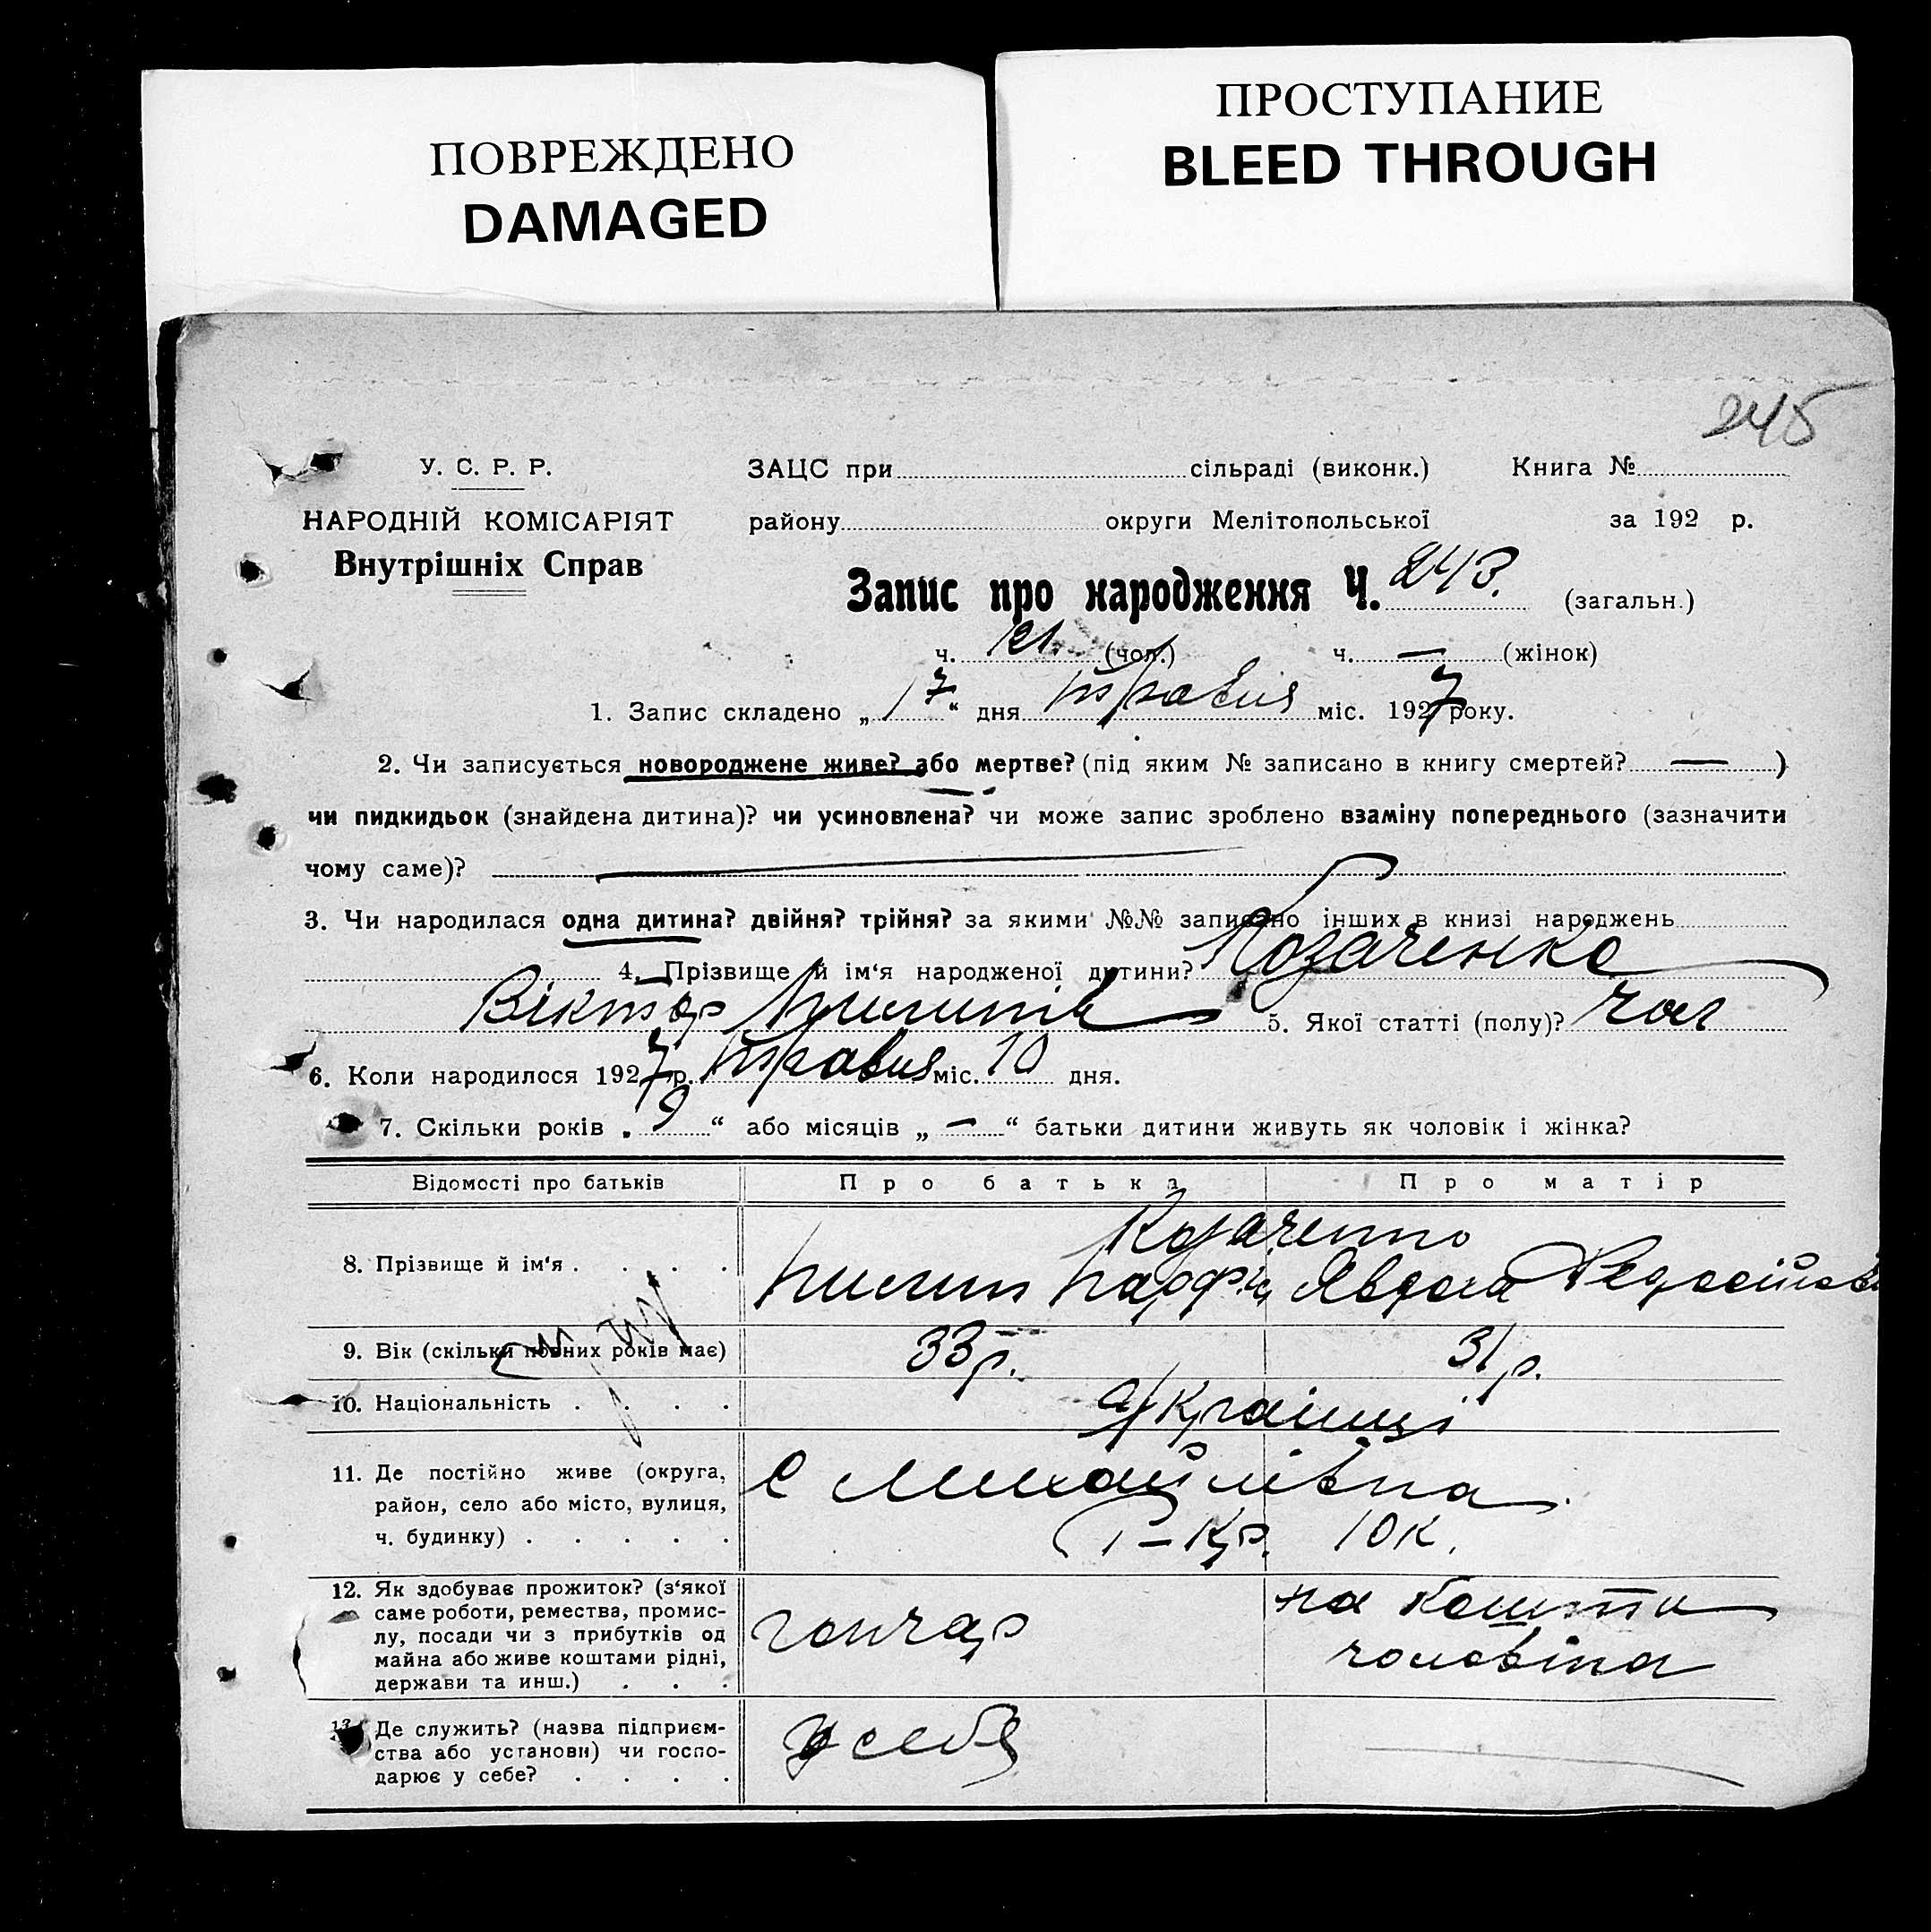 ПОВРЕЖДЕНО
DAMAGED
ПРОСТУПАНИЕ
BLEED THROUGH
245
У. С. Р. Р.
НАРОДНІЙ КОМІСАРІЯТ
Внутрішніх Справ
ЗАЦС при сільраді (виконк.) Книга №
району округи Мелітопольської за 192 р.
Запис про народження Ч. 243. (загальн.)
ч. 121. (чол.) ч. — (жінок)
1. Запис складено „17“ дня травня міс. 1927 року.
2. Чи записується новороджене живе? або мертве? (під яким № записано в книгу смертей? — )
чи пидкидьок (знайдена дитина)? чи усиновлена? чи може запис зроблено взаміну попереднього (зазначити
чому саме)?
3. Чи народилася одна дитина? двійня? трійня? за якими №№ записано інших в книзі народжень
4. Прізвище й ім‘я народженої дитини? Козаченко
Віктор 5. Якої статті (полу)? чол
6. Коли народилося 1927 р. травня міс. 10 дня.
7. Скільки років „9“ або місяців „—“ батьки дитини живуть як чоловік і жінка?
Відомості про батьків Про батька Про матір
8. Прізвище й ім‘я . . . . Козаченко
Пилип Парф. Явдоха
9. Вік (скільки повних років має) 33 р. 31 р.
10. Національність . . . . Українці
11. Де постійно живе (округа,
район, село або місто, вулиця,
ч. будинку) . . . . .
с Михайлівка
10 к.
12. Як здобуває прожиток? (з‘якої
саме роботи, ремества, промис-
лу, посади чи з прибутків од
майна або живе коштами рідні,
держави та инш.) . . .
гончар
на кошти
чоловіка
13. Де служить? (назва підприєм-
ства або установи) чи госпо-
дарює у себе? . . . .
у себе